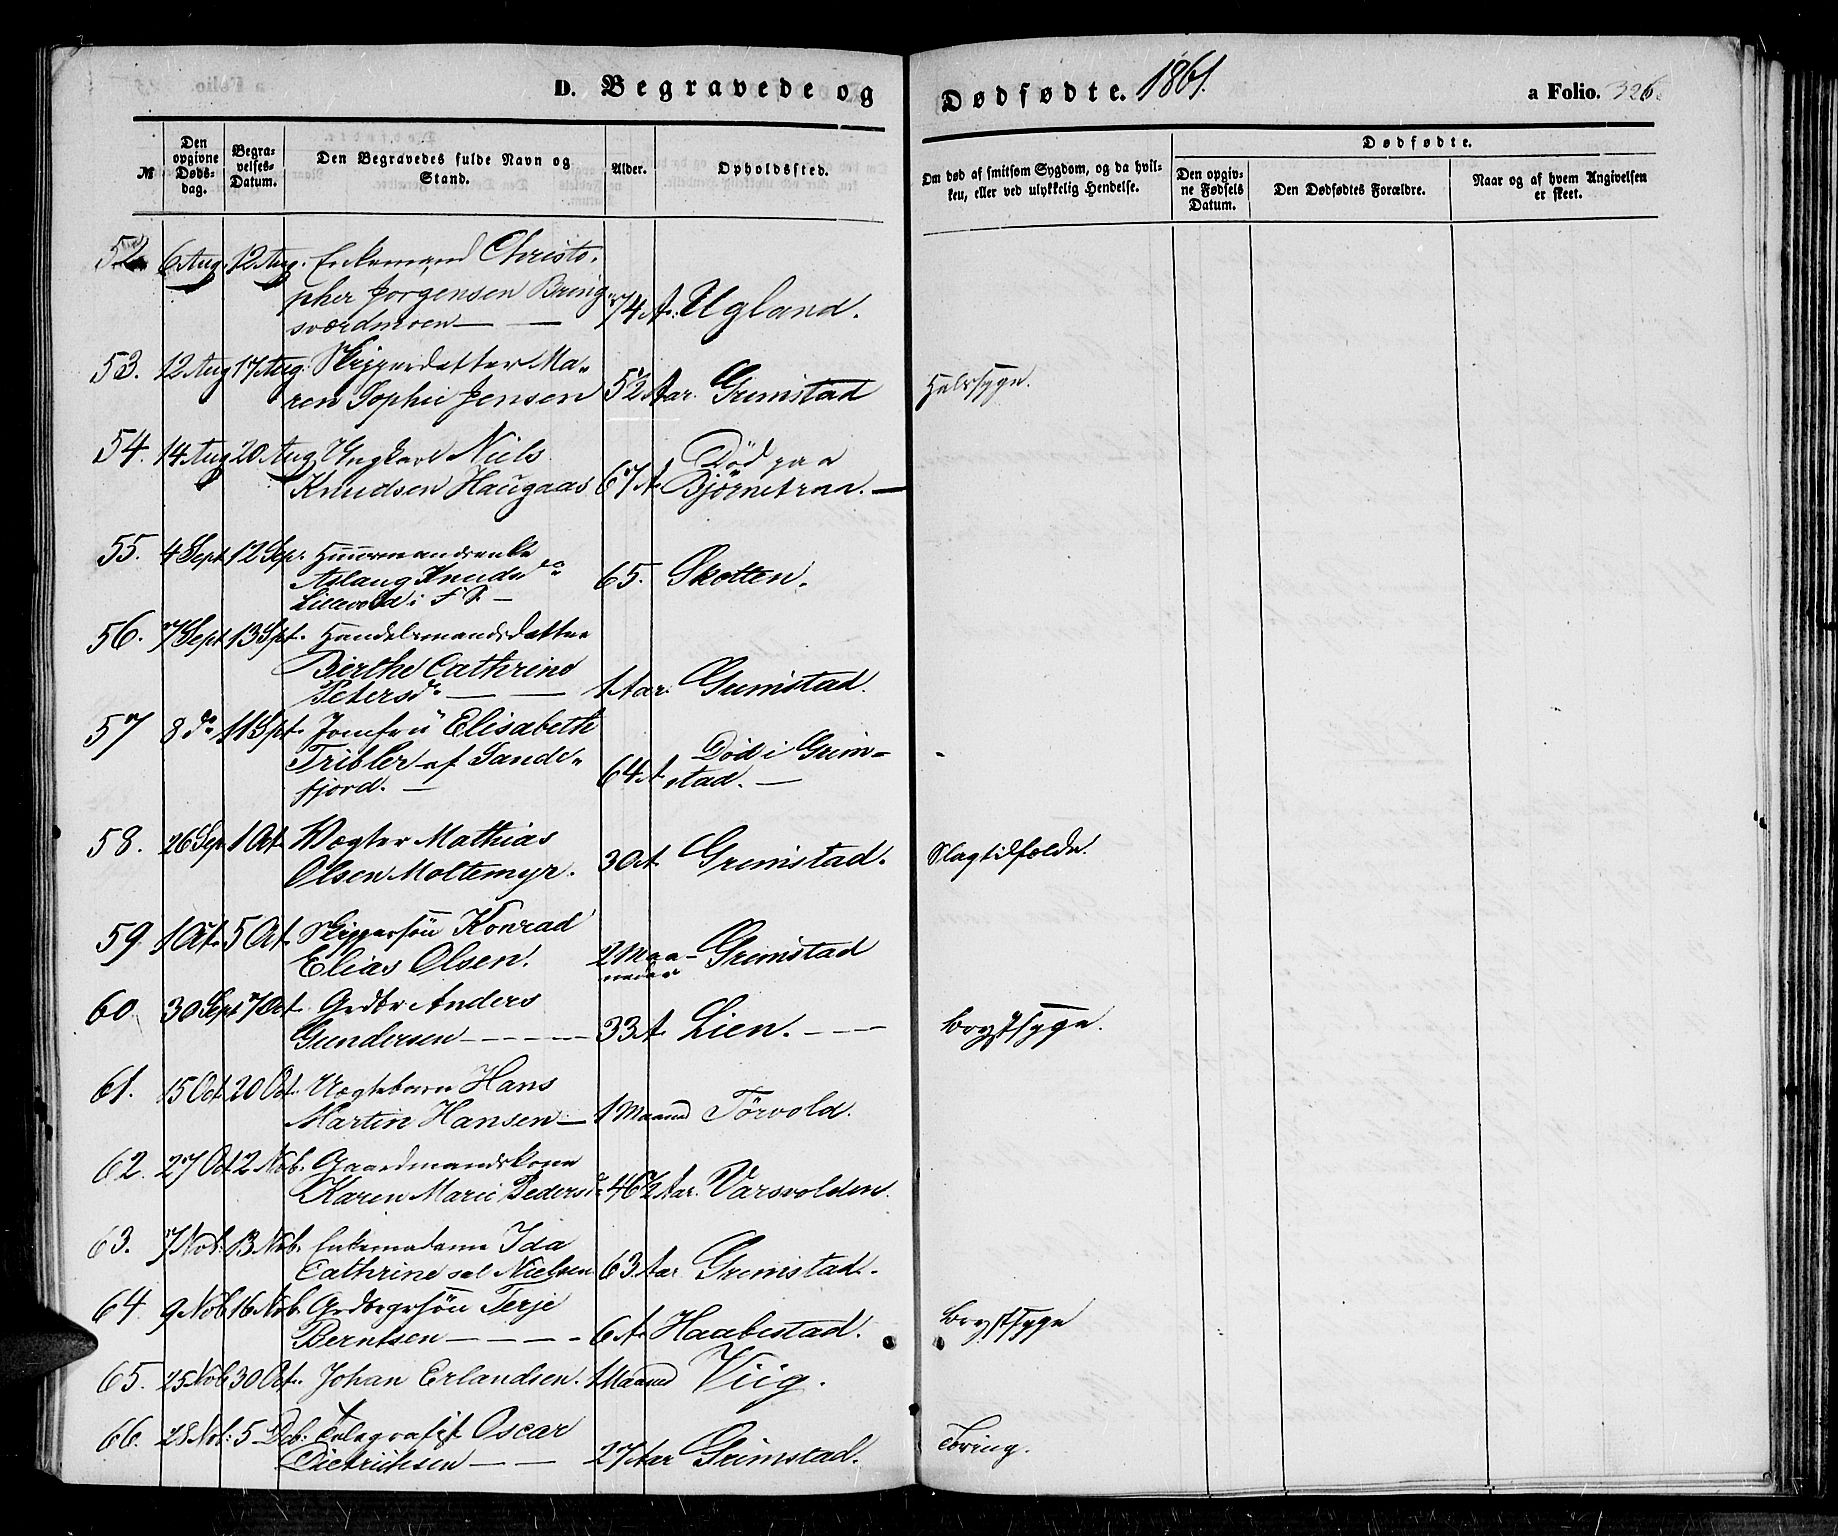 D. Begravede og Dødfødte. 1861. a Folio. 326.
№
Den opgivne Døds-dag.
Begra-velses-Datum.
Den Begravedes fulde Navn og Stand.
Alder.
Opholdssted.
Om død af smitsom Sygdom, og da hvil-ken, eller ved ulykkelig Hendelse.
Dødfødte.
Den opgiv-ne Fødsels Datum.
Den Dødfødtes Forældre.
Naar og af hvem Angivelsen er skeet.
52. 6 Aug. 12 Aug. Enkemand Christo-
pher Jørgensen Bring-
sværdmoen — 74 A. Ugland.
53. 12 Aug 17 Aug. Skipperdatter Ma-
ren Sophie Jensen 5½ Aar. Grimstad Halssyge.
54. 14 Aug 20 Aug Ungkarl Niels
Knudsen Haugaas 67 A. Død paa
Bjørnetraa. —
55. 4 Sept 12 Sep. Huusmandsenke
Aslaug Knudsda
Lillevold i F.P. — 65. Skotten.
56. 7 Sept 13 Spt. Handelsmandsdatter
Birthe Cathrine
Petersdr — 1 Aar. Grimstad.
57 8 do 11 Spt. Jomfru Elisabeth
Tribler af Sande-
fjord. — 64 A Død i Grim-
stad. —
58. 26 Sep 1 Oct. Vægter Mathias
Olsen Moltemyr. 30 A. Grimstad. Slagtilfælde.
59. 1 Oct. 5 Oct. Skippersøn Konrad
Elias Olsen. 2 Maa-
neder Grimstad
60. 30 Sept 7 Oct. Arbdr Anders
Gundersen — 33 A. Lien. — Brystsyge.
61. 15 Oct. 20 Oct. Uægtebarn Hans
Martin Hansen — 1 Maaned Törvold.
62. 27 Oct 2 Nob. Gaardmandskone
Karen Marie Pedersdr 46½ Aar. Varsvolden.
63. 7 Nob. 13 Nob. Enkemadame Ida
Cathrine sal Nielsen 63 Aar Grimstad.
64. 9 Nob 16 Nob. Arbdersøn Terje
Berntsen — 6 A. Haabestad. Brystsyge
65. 25 Nob 30 Oct. Johan Erlandsen. 1 Maaned Viig.
66. 28 Nob. 5 Deb. Telegrafist Oscar
Dietrichsen — 27 Aar Grimstad. Tæring.